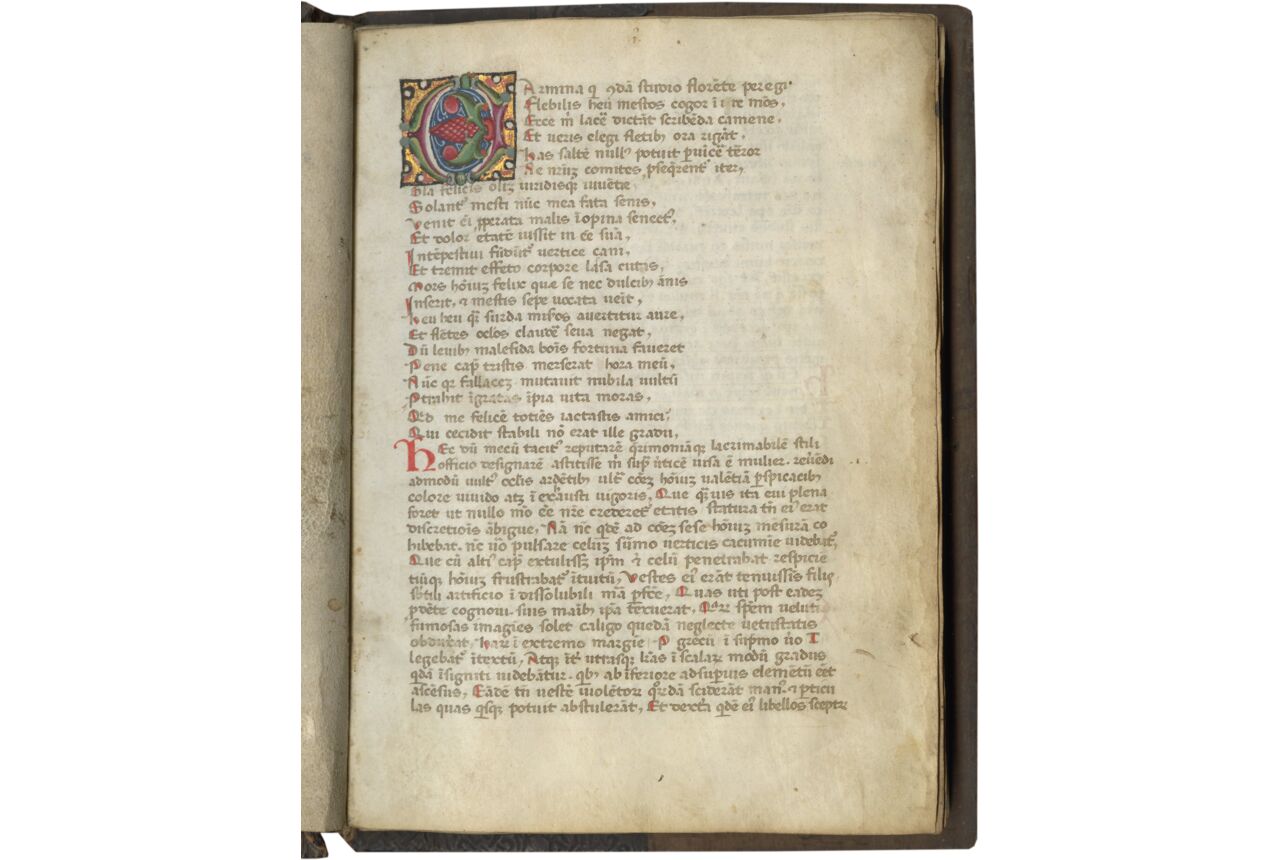 Carmina q̄ q̄dā studio florēte peregi.
Flebilis heū mestos cogor īire mōs.
Ecce m̄ lacē dictāt scribēda camene.
Et veris elegi fletibꝫ ora rigāt.
has saltē null' potuit puīcē terror
Ne nr̄ꝫ comites ꝓseqrent iter.
Gla felicis oliꝫ viridisqꝫ iuuēte
Solant᷒ mesti nūc mea fata senis.
Venit ēi ꝓperata malis īopina senect᷒.
Et dolor etatē iussit in ēe suā.
Intēpestiui fūdūt᷒ vertice cani.
Et tremit effeto corpore laxa cutis.
Mors hōiuꝫ felix que se nec dulcibꝫ ānis
Inserit. ⁊ mestis sepe vocata ueīt.
heu heu qr̄ surda misos auertitur aure.
Et flētes oclos claudē seua negat.
Dū leuibꝫ malefida bōis fortuna faueret
Pene cap᷒ tristis merserat hora meū.
Nūc qr fallaceꝫ mutauit nubila uultū
Ptrahit īgratas īpia uita moras.
Qd me felicē totiēs iactastis amici.
Qui cecidit stabili nō erat ille gradu.
Hec dū mecū tacit᷒ reputarē qrimoniāqꝫ lacrimabilē stili
officio designarē astitisse m̄ sup᷒ v̄ticē uisa ē mulier. reuēdi
admodū vult᷒ oclis ardētibꝫ ult᷒ cōeꝫ hōiuꝫ ualētiā ꝑspicacibꝫ
colore uiuido atqꝫ īexausti uigoris. Que qꝫuis ita eui plena
foret ut nullo mō ēe nr̄e crederet᷒ etatis statura tn̄ ei᷒ erat
discretiois ābigue. Nā nc̄ qdē ad cōeꝫ sese hōiuꝫ mesurā co
hibebat. nc̄ uō pulsare celuꝫ sūmo verticis cacumīe uidebat᷒.
Que cū alti᷒ cap᷒ extulissꝫ ip̄m ⁊ celū penetrabat respicie
tiūqꝫ hōiuꝫ frustrabat᷒ ītuitū. Vestes ei᷒ erāt tenuissīs filis
sbtili artificio īdissolubili mā ꝑfcē. Quas uti post eadeꝫ
ꝓdēte cognoui. suis maībꝫ ip̄a texuerat. Qꝫ spēm veluti
fumosas imagīes solet caligo quedā neglecte vetustatis
obduxerat. haꝝ ī extremo margīe P grecū ī sup̄mo uō T
legebat᷒ ītextū. Atqꝫ īt᷒ utrasqꝫ lr̄as ī scalaꝝ modū gradus
qdā īsigniti uidebātur. qbꝫ ab īferiore ad supius elemētū eēt
ascēsus. Eādē tn̄ uestē uiolētoꝝ qꝛdā sciderāt man᷒. ⁊ ꝑticu
las quas qsqꝫ potuit abstulerāt. Et dextᷓ qdē ei᷒ libellos sceptꝝ